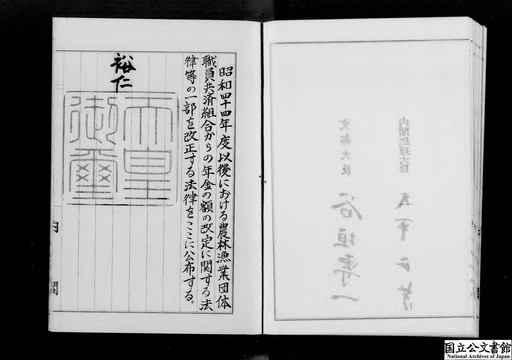 昭和四十四年度以後における農林漁業団体
職員共済組合からの年金の額の改定に関する法
律等の一部を改正する法律をここに公布する。
裕仁
天皇
御璽
内閣
内閣総理大臣
文部大臣
谷垣專一
国立公文書館
National Archives of Japan